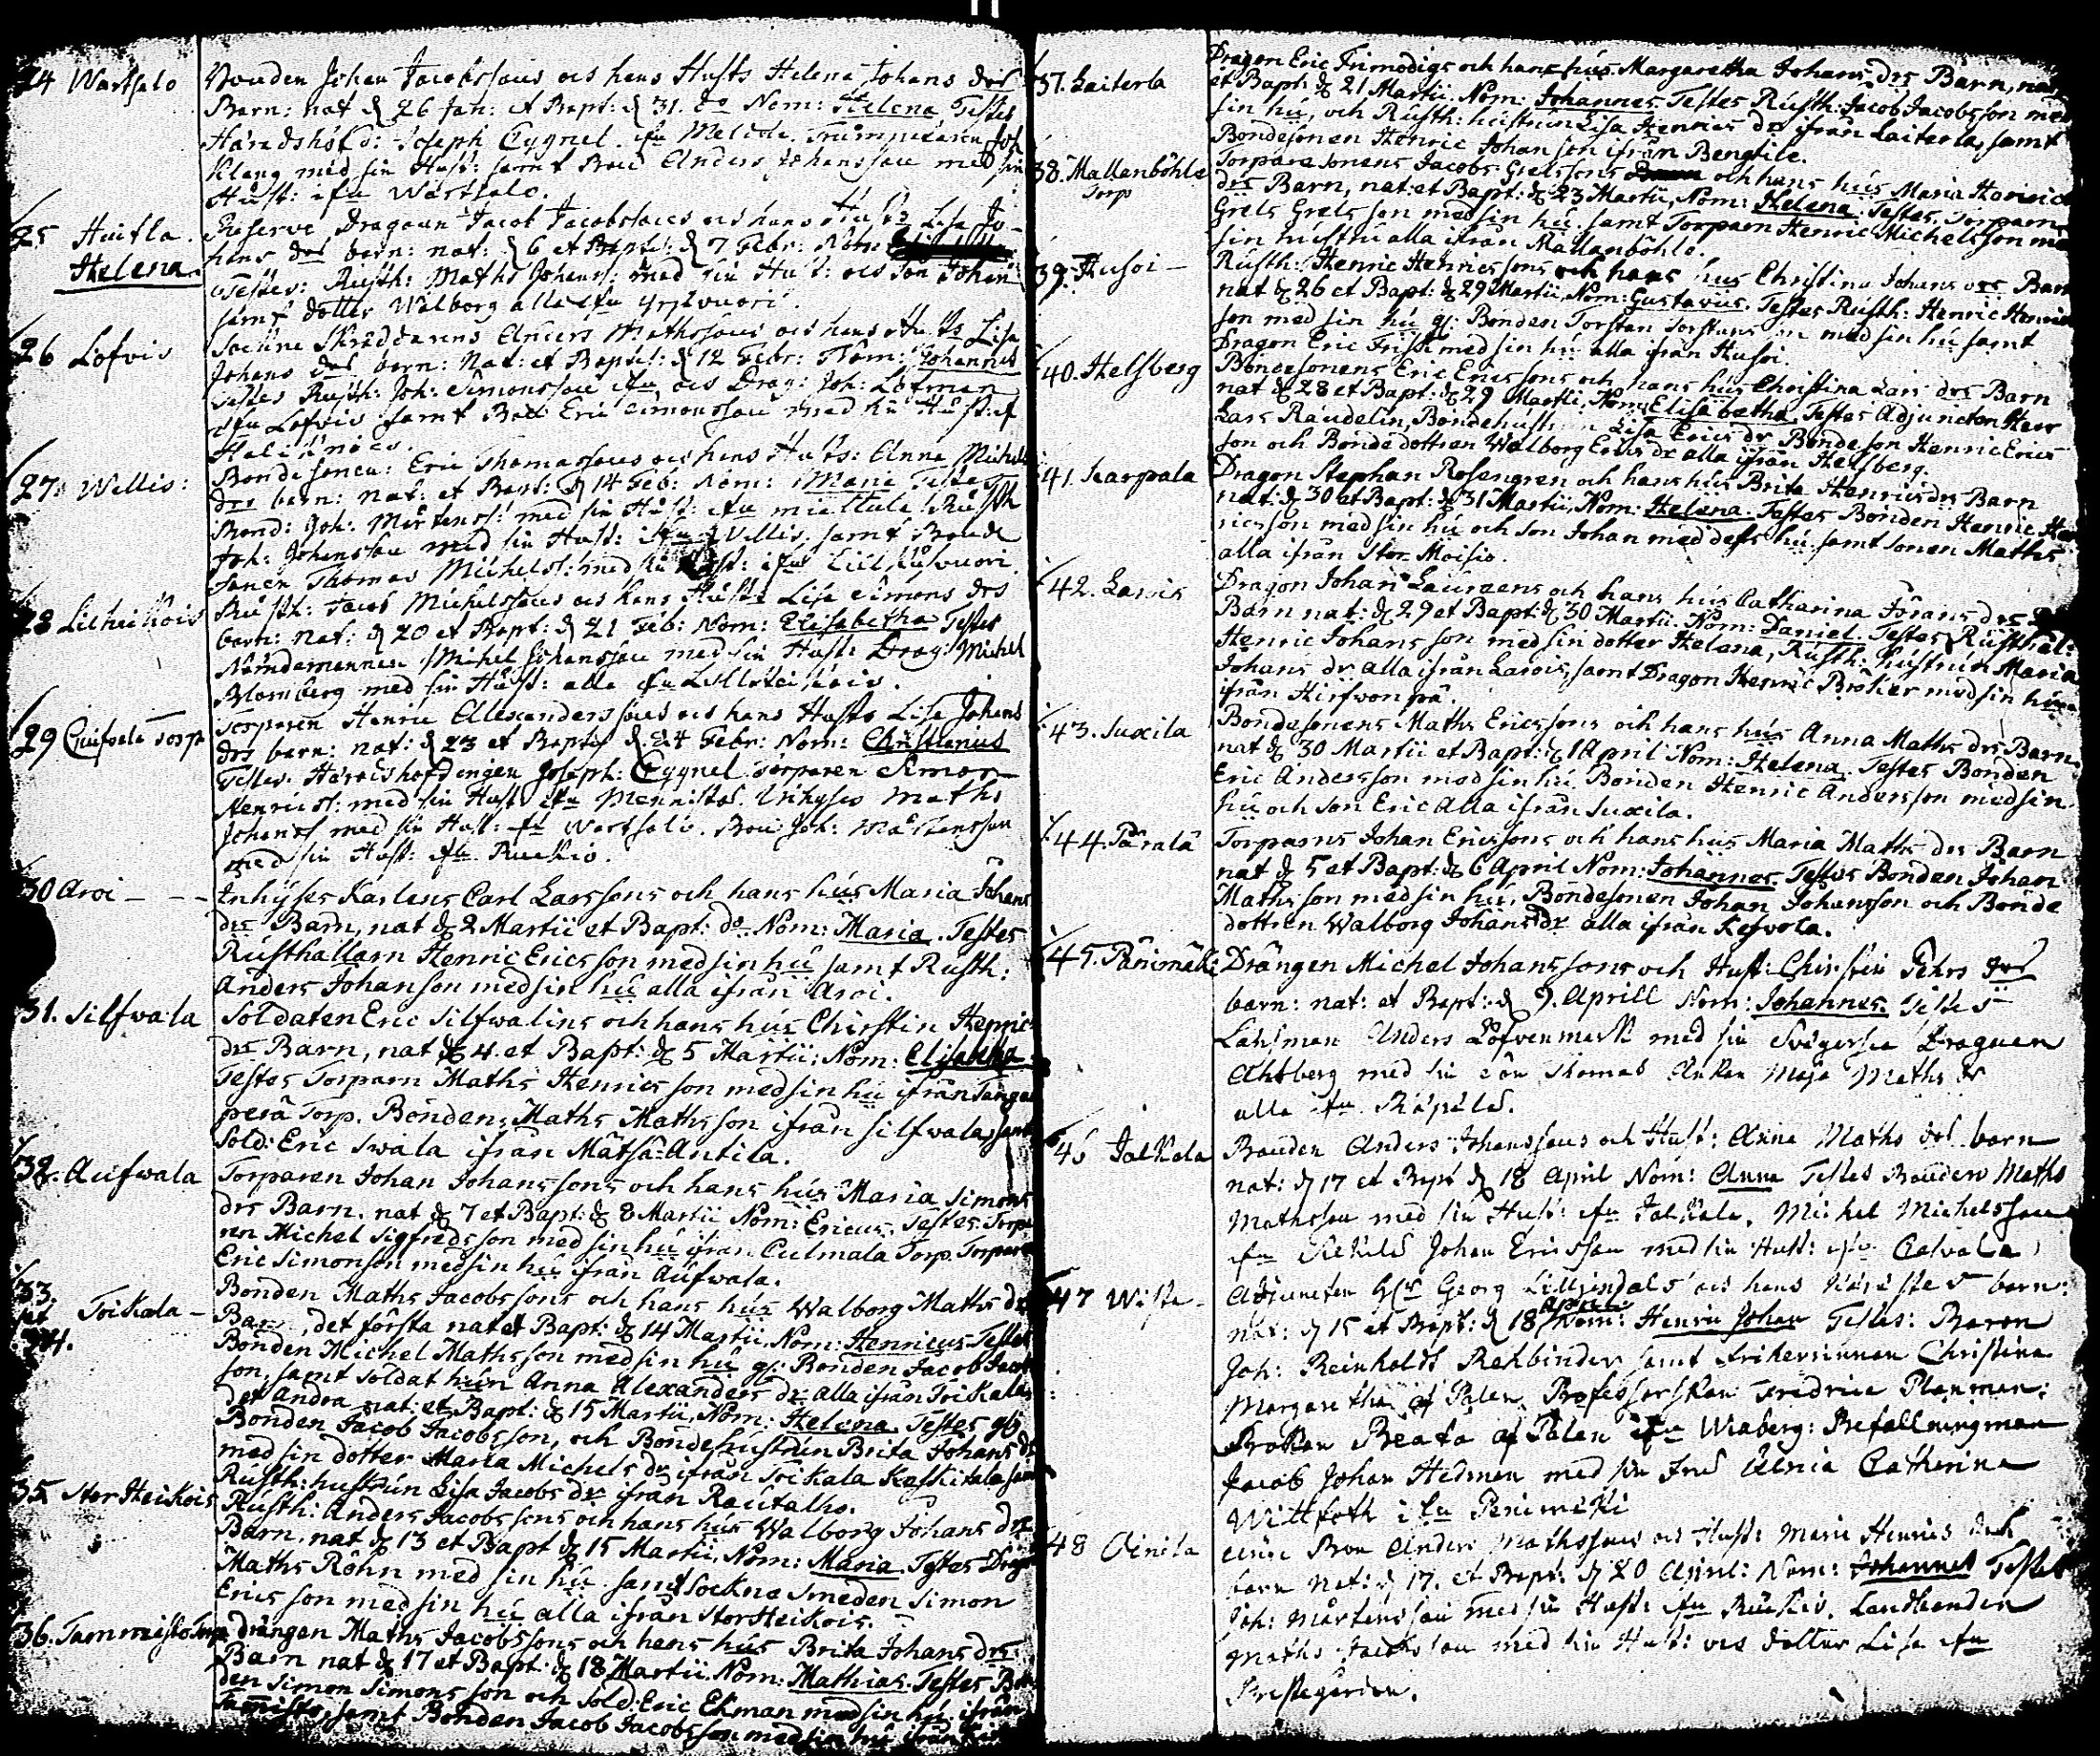 24 Wartsalo Bonden Johan Jacobssons och hans Hust: Helena Johans dr
Barn: nat d 26 Jan: et Bapt: d 31. do Nom: Helena Testes
Häradshöfd: Joseph Cygnel. Trumpetaren Joh
Klang med sin Hust: samt Anders Johansson med sin
Hust: ifrn Wartsalo.
25 Huitla. Reserve Dragoun Jacob Jacobssons och hans Lisa Jo-
Helena. hans dr barn: nat: d 6 et Bapt: d 7 Febr: Nom:
Testes: Rusth: Maths Johans: med sin Hust: och son Johan
samt dotter Walborg alla ifrn
26 Lofvis Sockne Skräddarens Anders Mathssons och hans Lisa
Johans dr barn: Nat: et Bapt: d 12 Febr: Nom: Johannes
Testes Rusth: Joh: Simonsson och Drag: Joh: Löfman
ifrn Lofvis samt Eric Simonsson med
27 Willis: Bondesonen: Eric Thomassons och hans Anna Michels
dr barn: nat: et Bapt: d 14 Feb: Nom: Maria Testes
Bond: Joh: Mårtens: med sin Hust: Rusth
Joh: Johansson med sin Hust: ifrn Willis samt Bonde
sonen Thomas Michels: med
28 Lilheikois Rusth: Jacob Michelssons och hans Lisa Simons drs
barn: nat: d 20 et Bapt: d 21 Feb: Nom: Elisabetha Testes
Nämdemannen Michel Johansson med sin Hust: Drag: Michel
Blomberg med sin Hust: alla ifrn
29 Torp Torparen Henric Allexanderssons och hans Lisa Johans
drs barn: nat: d 23 et Bapt: d 24 Febr: Nom: Christianus
Testes: Joseph: Cygnel Torparen Simon
Henrics: med sin Hust: Inhyses Maths
Johans med sin Hust: Wartsalo. Joh: Mårtensson
med sin Hust: ifrn Ruckio.
30 Aroi - - - Inhyses Karlens Carl Larssons och hans hus Maria Johans
dr Barn, nat d 2 Martii et Bapt: do Nom: Maria. Testes
Rusthållarn Henric Ericsson med sin hu samt Rusth:
Anders Johanson med sin hu alla ifrån Aroi.
31. Silfwala Soldaten Eric Silfwalins och hans hus Christin Henrics
dr Barn, nat d 4. et Bapt: d 5 Martii: Nom: Elisabetha.
Testes Torparn Maths Henricsson med sin hu ifrån
perä Torp. Bonden Maths Mathsson ifrån Silfwala, samt
Sold: Eric Swala ifrån Mätsä-Antila.
32. Aufwala Torparen Johan Johanssons och hans hus Maria Simons
drs Barn, nat d 7 et Bapt: d 8 Martii Nom: Ericus. Testes Torpa
ren Michel Sigfredsson med sin hu ifrån Culmala Torp. Torparen
Eric Simonson med sin hu ifrån Aufwala.
33. et 34. Toikala - Bonden Maths Jacobssons och hans hus Walborg Maths dr
Barn, det första nat et Bapt: d 14 Martii, Nom: Henricus Testes
Bonden Michel Mathsson med sin hu Bonden Jacob Jacob
son, samt Soldat hun Anna Alexanders dr alla ifrån Toikala,
det andra nat: et Bapt: d 15 Martii, Nom: Helena Testes
Bonden Jacob Jacobsson, och Bondehustrun Brita Johans dr
med sin dotter Maria Michels dr ifrån Toikala samt
Rusth: hustrun Lisa Jacobs dr ifrån Rautalho.
35 Stor Heikois Rusth: Anders Jacobssons och hans hus Walborg Johans drs
Barn, nat d 13 et Bapt d 15 Martii, Nom: Maria. Testes Drag
Maths Röhn med sin hu samt Sockne Smeden Simon
Ericsson med sin hu alla ifrån StorHeikois.
36. Tammisto Torp drängen Maths Jacobssons och hans hus Brita Johans drs
Barn nat d 17 et Bapt: d 18 Martii. Nom: Mathias. Testes Bon
den Simon Simonsson och Sold: Eric Ekman med sin hu ifrån
samt Bonden Jacob Jacobsson med sin hu ifrån
37. Laiterla Dragon Eric Frimodigs och hans hus Margaretha Johans drs Barn, nat
et Bapt: d 21 Martii Nom: Johannes. Testes Rusth: Jacob Jacobsson med
sin hu, och Rusth: hustrun Lisa Henrics dr ifrån Laiterla, samt
Bondesonen Henric Johanson ifrån Bengtile.
38. Mallanböhle Torp Torparesonens Jacobs Grelssons och hans hus Maria Henrics
drs Barn, nat: et Bapt: d 23 Martii, Nom: Helena. Testes Torparn
Grels Grelsson med sin hu samt Torparn Henric Michelsson med
sin hustru alla ifrån Mallanböhle.
39. Husoi - Rusth: Henric Henricssons och hans hus Christina Johans drs Barn
nat d 26 et Bapt: d 29 Martii, Nom: Gustavus. Testes Rusth: Henric Henrics
son med sin hu Bonden Torsten Torstensson med sin hu samt
Dragon Eric Frisk med sin hu alla ifrån Husoi.
40. Helsberg Bondesonens Eric Ericssons och hans hus Christina Lars drs Barn
nat d 28 et Bapt: d 29 Martii, Nom: Elisabetha. Testes Adjuncten Herr
Lars Raudelin, Bondehustrun Lisa Erics dr Bondeson Henric Erics
son och Bondedottren Walborg Erics dr alla ifrån Helsberg.
41. Karpala Dragon Stephan Rosengren och hans hus Brita Henrics drs Barn
nat: d 30 et Bapt: d 31 Martii, Nom: Helena. Testes Bonden Henric Hen
ricsson med sin hu och son Johan med dess hu samt sonen Maths
alla ifrån Stor Moisio.
42. Larois Dragon Johan Laurzens och hans hus Catharina Jörans drs
Barn nat: d 29 et Bapt: d 30 Martii. Nom: Daniel. Testes Rusthål:
Henric Johansson med sin dotter Helena, Rusth: hustrun Maria
Johans dr alla ifrån Larois, samt Dragon Henric Bröker med sin hu
ifrån Hirfwonpä.
43. Suxila Bondesonens Maths Ericssons och hans hus Anna Maths drs Barn
nat d 30 Martii et Bapt: d 1 April Nom: Helena. Testes Bonden
Eric Andersson med sin hu Bonden Henric Andersson med sin
hu och son Eric alla ifrån Suxila.
44. Pärälä Torparns Johan Ericssons och hans hus Maria Maths drs Barn
nat d 5 et Bapt: d 6 April Nom: Johannes. Testes Bonden Johan
Mathsson med sin hu, Bondesonen Johan Johansson och Bonde
dottren Walborg Johans dr alla ifrån Kesvola.
45. Pänimäki Drängen Michel Johanssons och Hust: Christin Pehrs drs
barn: nat: et Bapt: d 9. Aprill Nom: Johannes. Testes
Länsman Anders Löfvenmark med sin Svägerska Dragoun
Ahlberg med sin son Thomas Enkan Maja Maths dr
alla ifrn
46 Jalkala Bonden Anders Johanssons och Hust: Anna Maths dr barn
nat: d 17 et Bapt d 18 April Nom: Anna Testes Bonden Maths
Mathsson med sin Hust: ifrn Jalkala, Michel Michelsson
ifrn Johan Ericsson med sin Hust: ifrn
47 Adjuncten Georg Lilljendals och hans barn:
nat: d 15 et Bapt: d 18 April Nom: Henric Johan Testes: Baron
Joh: Reinholdt Rehbinder samt Friherrinnan Christina
Margaretha af Palen, Professorskan Fredrica Planman,
Fröken Beata af Palen ifrn Wiaberg: Befallningsman
Jacob Johan Hedman med sin Fru Ulrica Catharina
Wittfoth ifrn Penimäki
48 Anders Mathssons och Hust: Maria Henrics dr
barn nat: d 17. et Bapt: d 20 April: Nom: Johannes Testes
Joh: Mårtensson med sin Hust: ifrn Landbonden
Maths Jacobsson med sin Hust: och dotter Lisa ifrn
Prestegården.